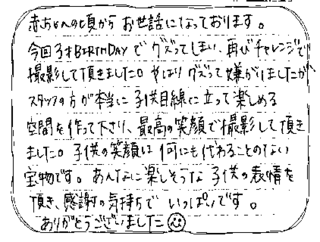 赤ちゃんの頃からお世話になっております。
今回3才BIRTHDAYでグズってしまい、再びチャレンジで
撮影して頂きました。やはりグズって嫌がりましたが
スタッフの方が本当に子供目線に立って楽しめる
空間を作って下さり、最高の笑顔で撮影して頂き
ました。子供の笑顔は何にも代わることのない
宝物です。あんなに楽しそうな子供の表情を
頂き、感謝の気持ちでいっぱいです。
ありがとうございました